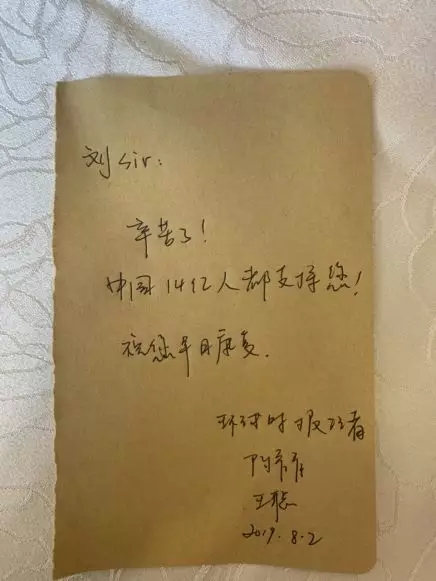 刘Sir:
辛苦了!
中国14亿人都支持您!
祝您早日康复.
环球时报记者
王聪
2019.8.2